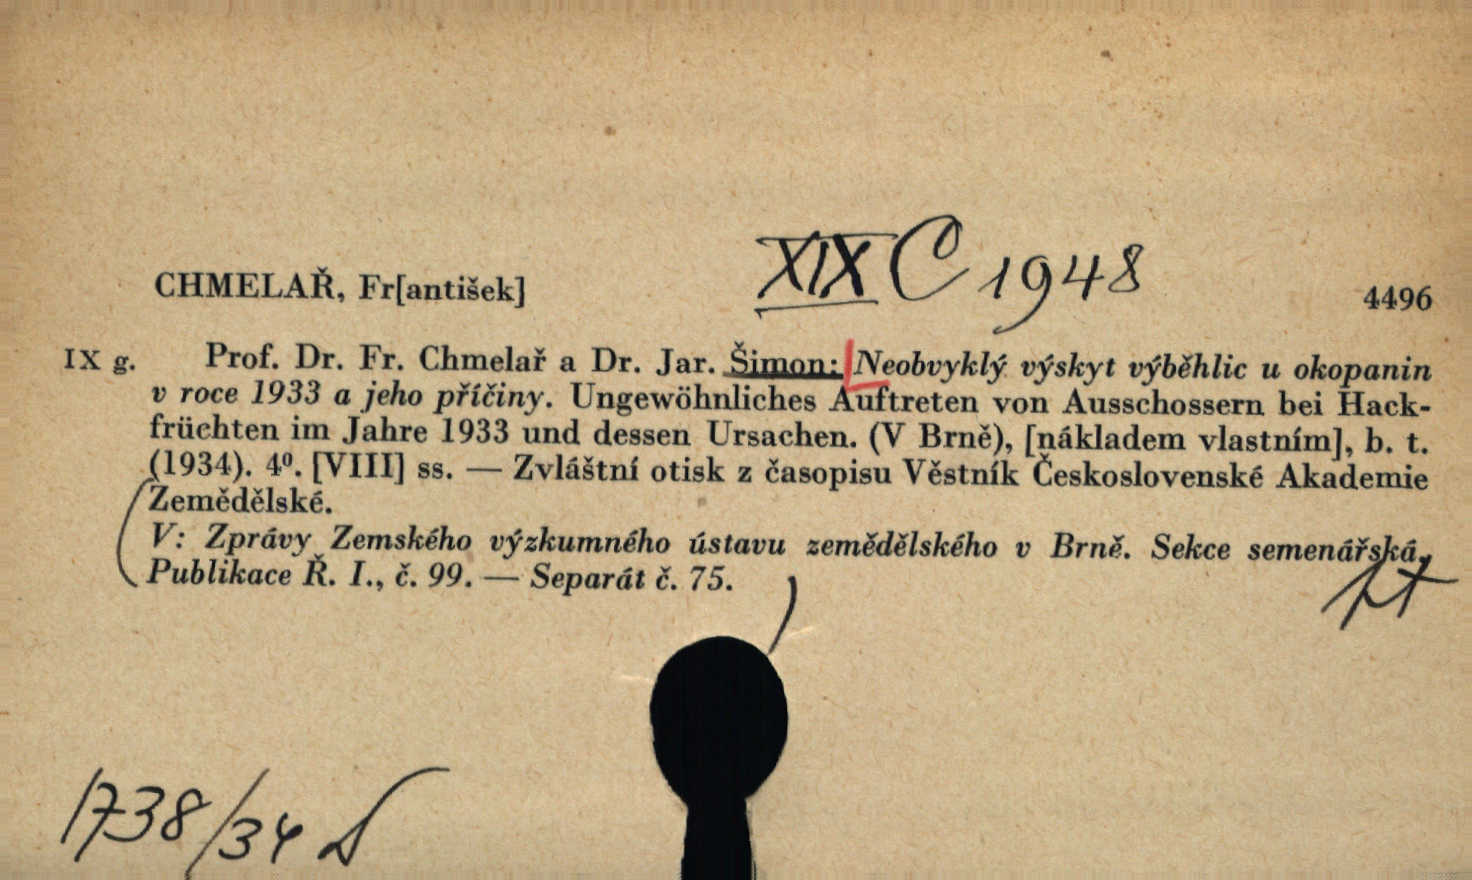 XIX C 1948
CHMELAŘ, Fr[antišek]
4496
IX g. Prof. Dr. Fr. Chmelař a Dr. Jar. Šimon: Neobvyklý výskyt výběhlic u okopanin
v roce 1933 a jeho příčiny. Ungewöhnliches Auftreten von Ausschossern bei Hack-
früchten im Jahre 1933 und dessen Ursachen. (V Brně), [nákladem vlastním], b. t.
(1934). 4⁰. [VIII] ss. — Zvláštní otisk z časopisu Věstník Československé Akademie
Zemědělské.
V: Zprávy Zemského výzkumného ústavu zemědělského v Brně. Sekce semenářská,
Publikace Ř. I., č. 99. — Separát č. 75.
1738/34